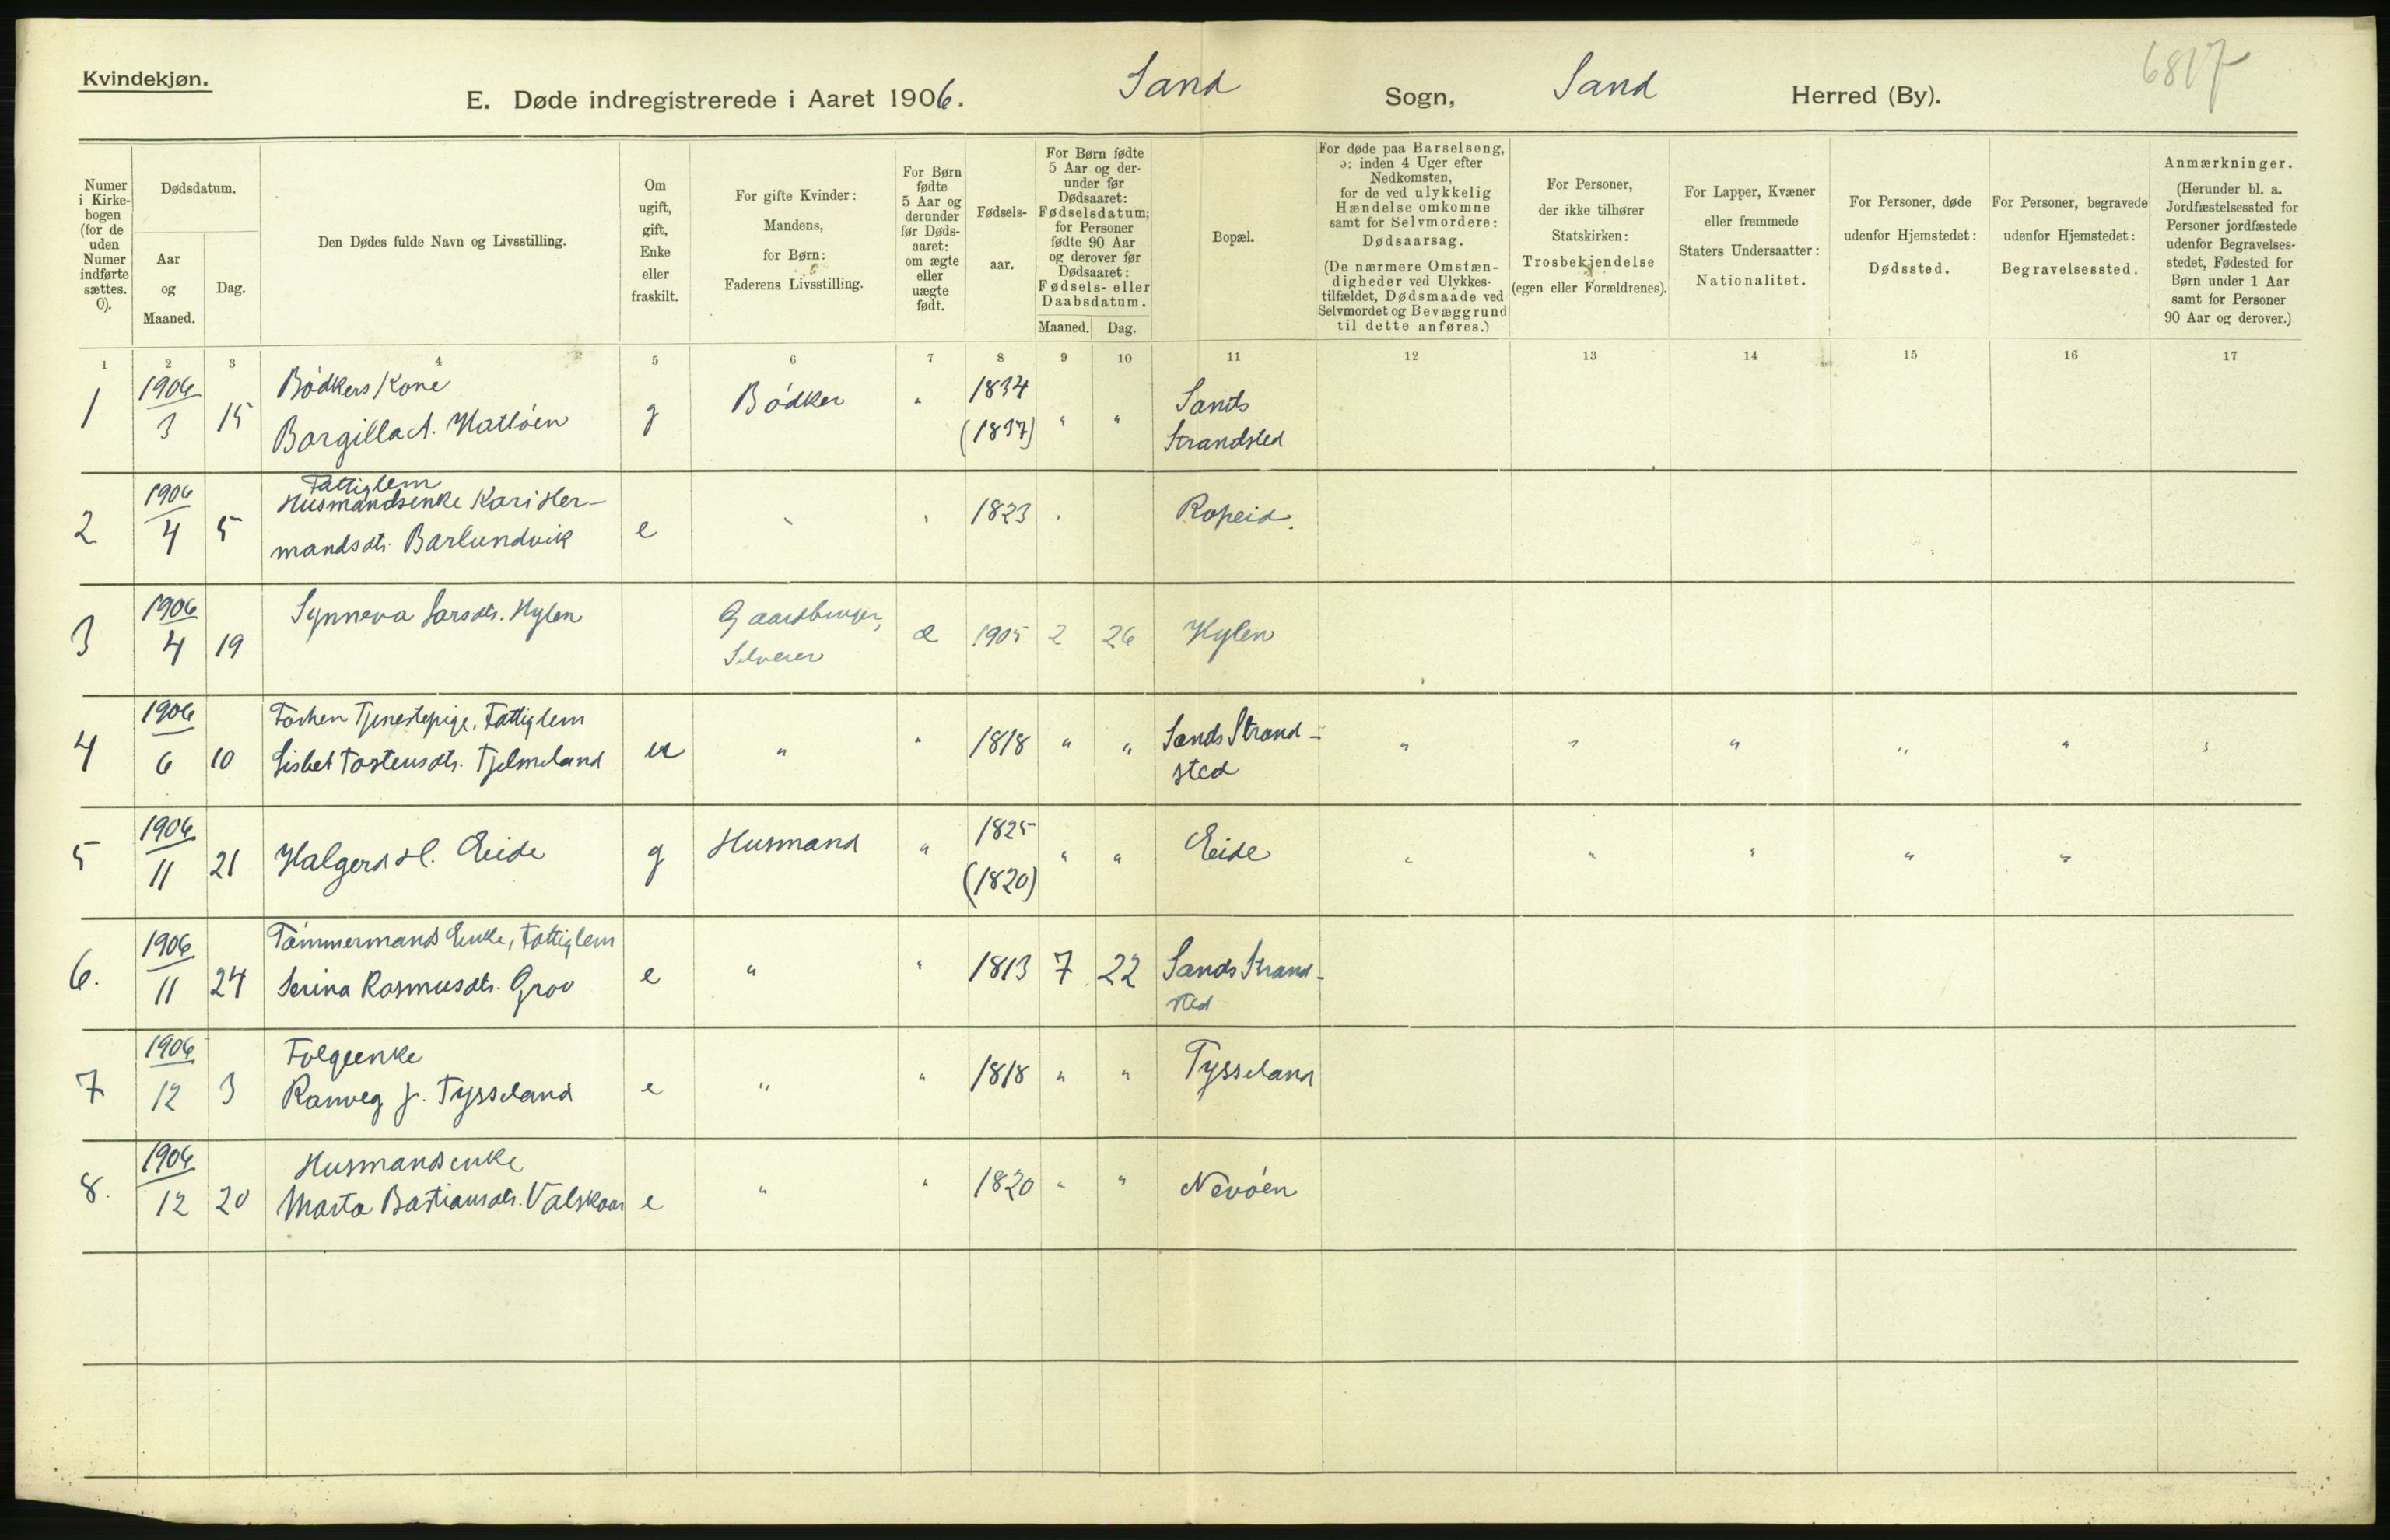 Kvindekjøn.
E. Døde indregistrerede i Aaret 1906. Sand Sogn, Sand Herred (By).
6817
Numer i Kirkebogen (for de uden Numer indførte sættes. 0).
Dødsdatum.
Aar og Maaned.
Dag.
Den Dødes fulde Navn og Livsstilling.
Om ugift, gift, Enke eller fraskilt.
For gifte Kvinder: Mandens, for Børn: Faderens Livsstilling.
For Børn fødte 5 Aar og derunder før Dødsaaret: om ægte eller uægte født.
Fødselsaar.
For Børn fødte 5 Aar og derunder før Dødsaaret: Fødselsdatum; for Personer fødte 90 Aar og derover før Dødsaaret: Fødsels- eller Daabsdatum.
Maaned. Dag.
Bopæl.
For døde paa Barselseng, ɔ: inden 4 Uger efter Nedkomsten, for de ved ulykkelig Hændelse omkomne samt for Selvmordere: Dødsaarsag.
(De nærmere Omstændigheder ved Ulykkestilfældet, Dødsmaade ved Selvmordet og Bevæggrund til dette anføres.)
For Personer, der ikke tilhører Statskirken: Trosbekjendelse (egen eller Forældrenes).
For Lapper, Kvæner eller fremmede Staters Undersaatter: Nationalitet.
For Personer, døde udenfor Hjemstedet: Dødssted.
For Personer, begravede udenfor Hjemstedet: Begravelsessted.
Anmærkninger.
(Herunder bl. a. Jordfæstelsessted for Personer jordfæstede udenfor Begravelsesstedet, Fødested for Børn under 1 Aar samt for Personer 90 Aar og derover.)
1 2 3 4 5 6 7 8 9 10 11 12 13 14 15 16 17
1 1906/3 15 Bødkers Kone
Borgilla A. Hatløen g Bødker " 1834 (1837) " " Sands Strandsted
2 1906/4 5 Fattiglem
Husmandsenke Kari Her-
mandsdtr. Barlundvik e " " 1823 Ropeid.
3 1906/4 19 Synneva Larsdtr. Hylen Gaardbruger, Selveier æ 1905 2 26 Hylen
4 1906/6 10 Forhen Tjenestepige, Fattiglem
Lisbet Torstensdtr. Tjelmeland u " " 1818 " " Sands Strand-
sted " " " " " "
5 1906/11 21 Halgerd H. Eide g Husmand " 1825 (1820) " " Eide " " " " "
6. 1906/11 24 Tømmermands Enke, Fattiglem
Serina Rasmusdtr. Grov e " " 1813 7 22 Sands Strand-
sted
7 1906/12 3 Folgeenke
Ranveg J. Tysseland e " " 1818 " " Tysseland
8. 1906/12 20 Husmandsenke
Marta Bastiansdtr. Valskaar e " " 1820 " " Nevøen